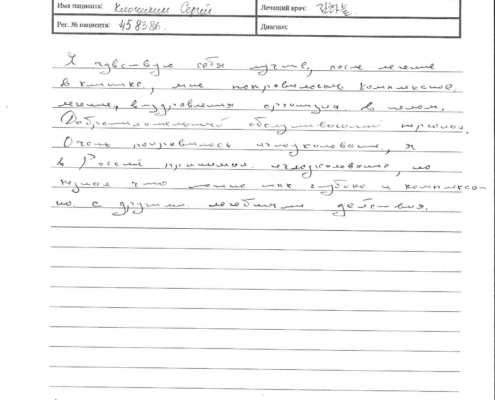 Имя пациента: Клочихин Сергей Лечащий врач: 강하늘
Рег. № пациента: 458386 Диагноз:
Я чувствую себя лучше, после лечения
в клинике, мне понравилось комплексное
лечение, выздоровления организма в целом.
Доброжелательный обслуживающий персонал.
Очень понравилось иглоукалывание, я
в России принимал иглоукалывание, но
не знал что можно так глубоко и комплексно
но с другими лечебными действия.